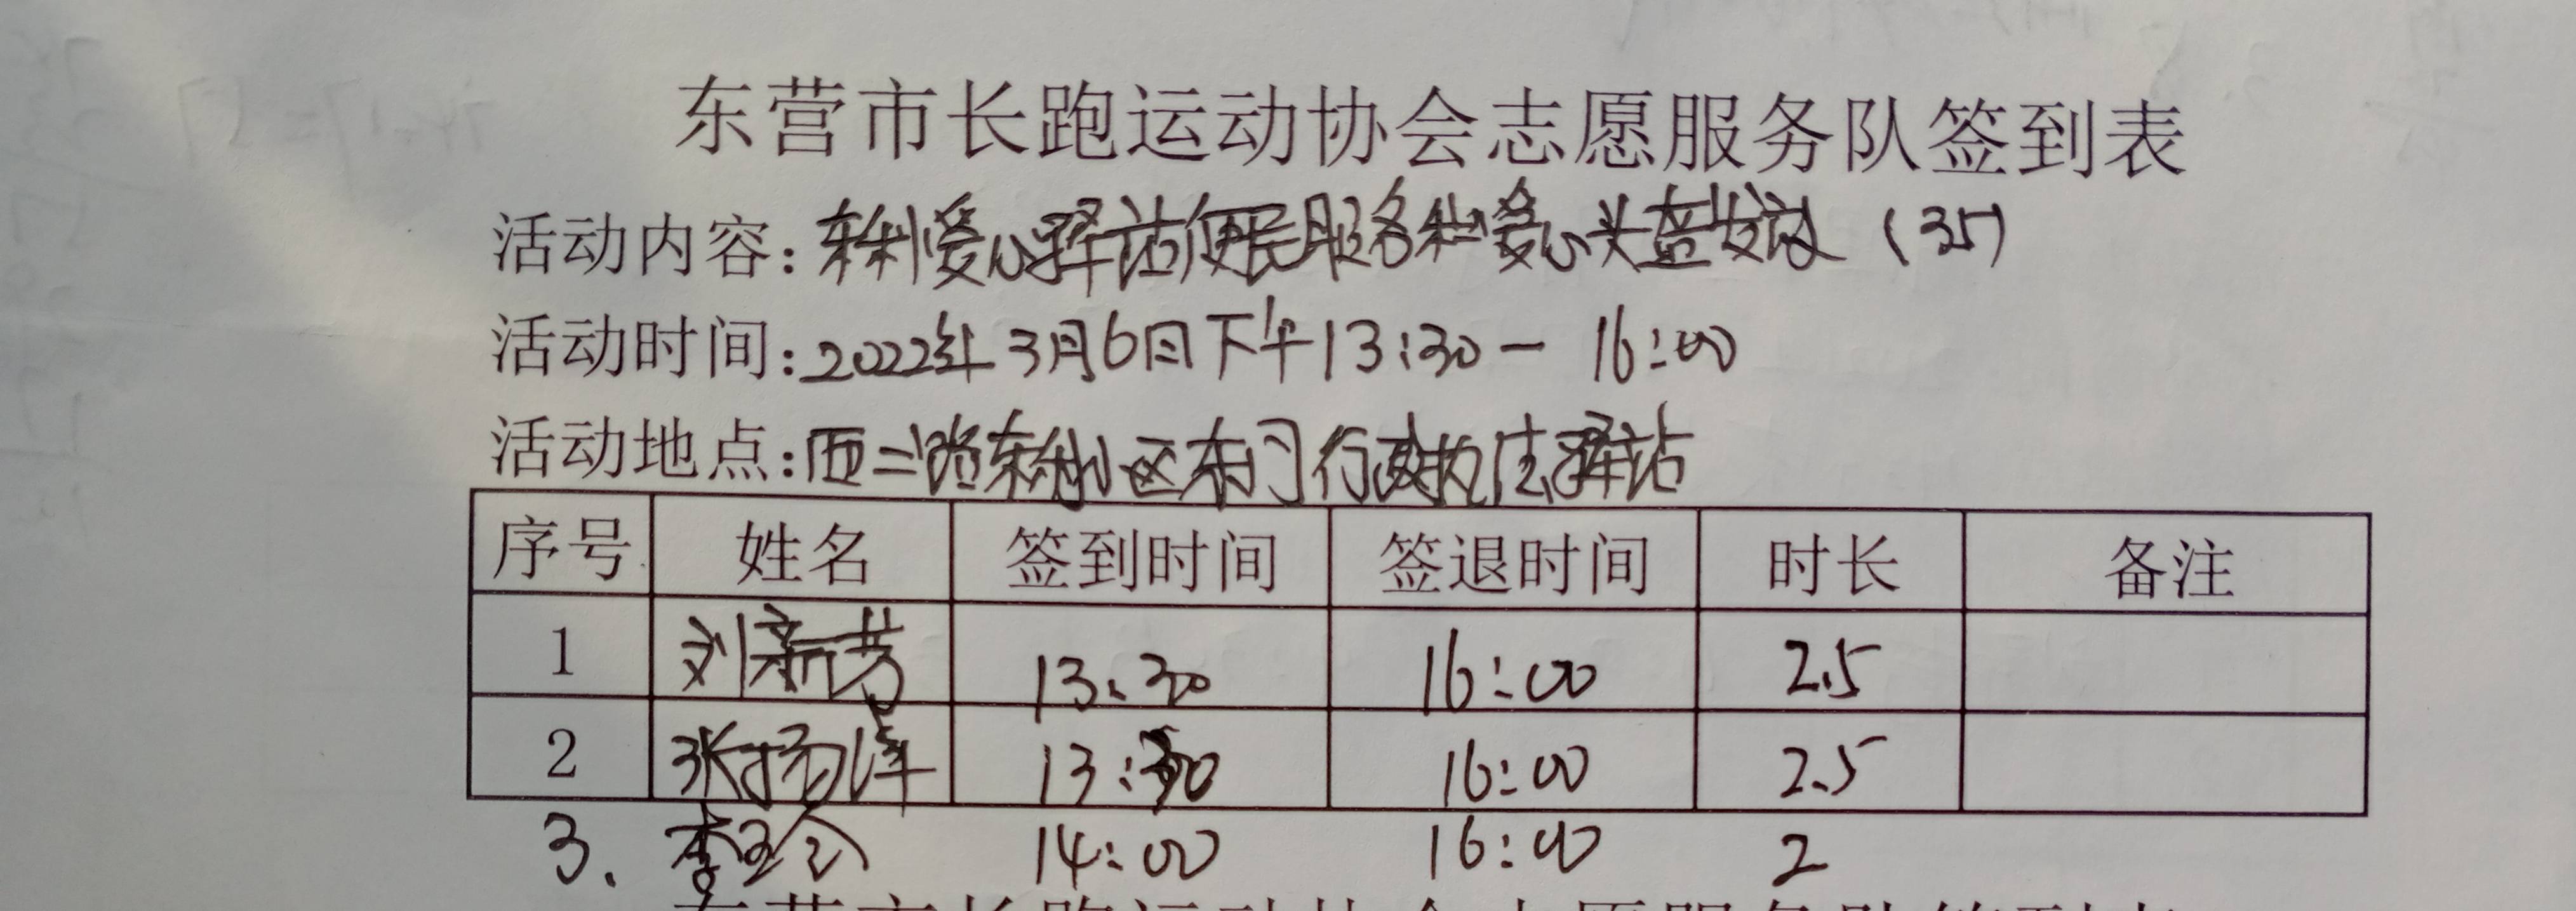 东营市长跑运动协会志愿服务队签到表
活动内容：东利爱心驿站便民服务和爱心头盔发放（35）
活动时间：2022年3月6日下午13:30— 16:00
活动地点：西二路东利小区东门行政执法驿站
序号 姓名 签到时间 签退时间 时长 备注
1 刘新芳 13:30 16:00 2.5
2 张扬 13:30 16:00 2.5
3. 李 14:00 16:00 2